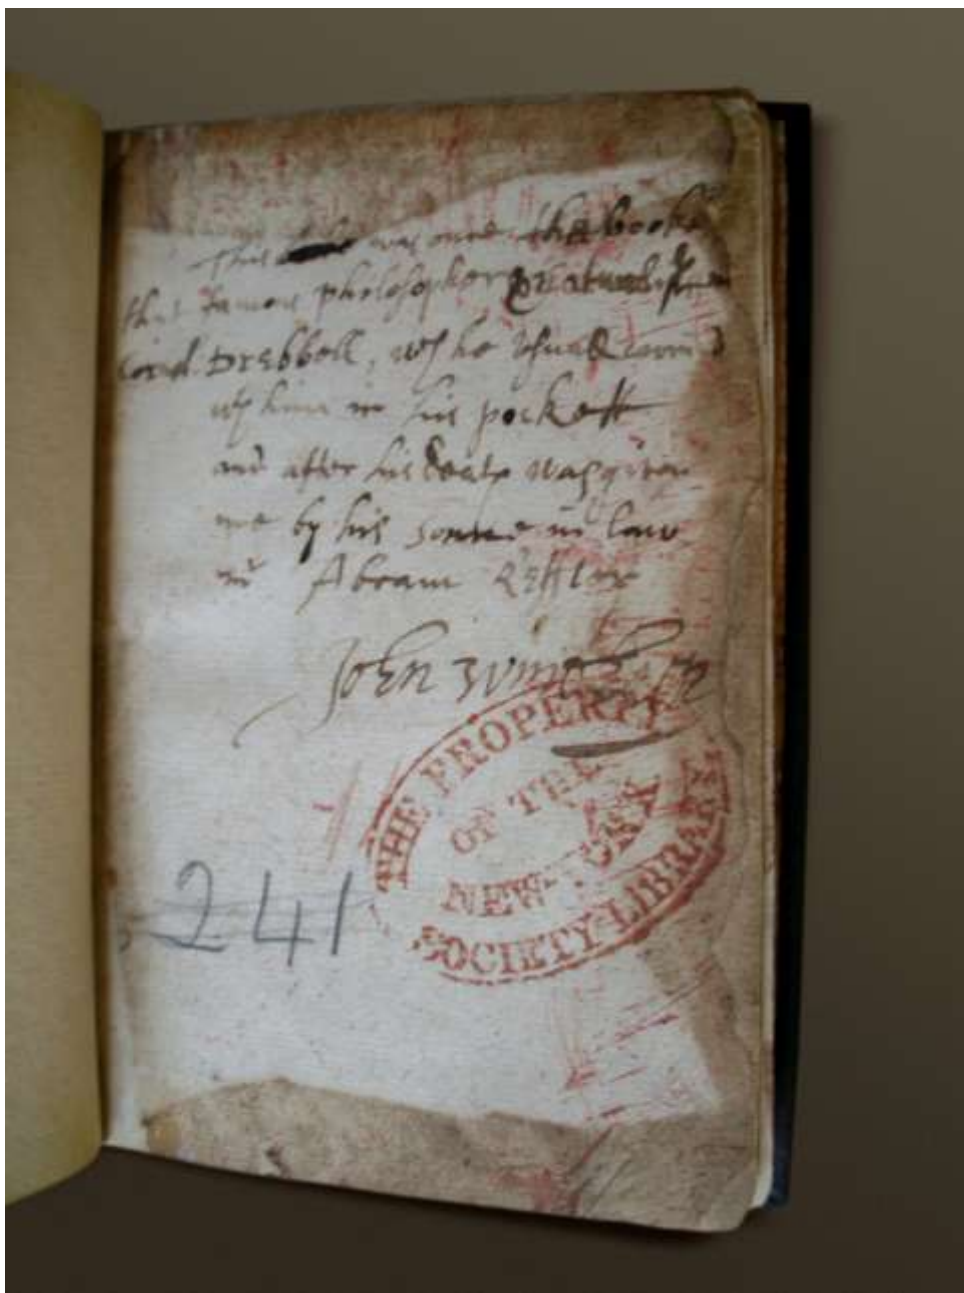 This was once the booke
that famous philosopher & naturalist
Corneil. Drebbell, wch he usuall carried
wth him in his pockett
and after his death was given
me by his sonne in law
mr Abram Keffler
John Winthrop
THE PROPERTY
OF THE
NEW-YORK
SOCIETY LIBRARY
241